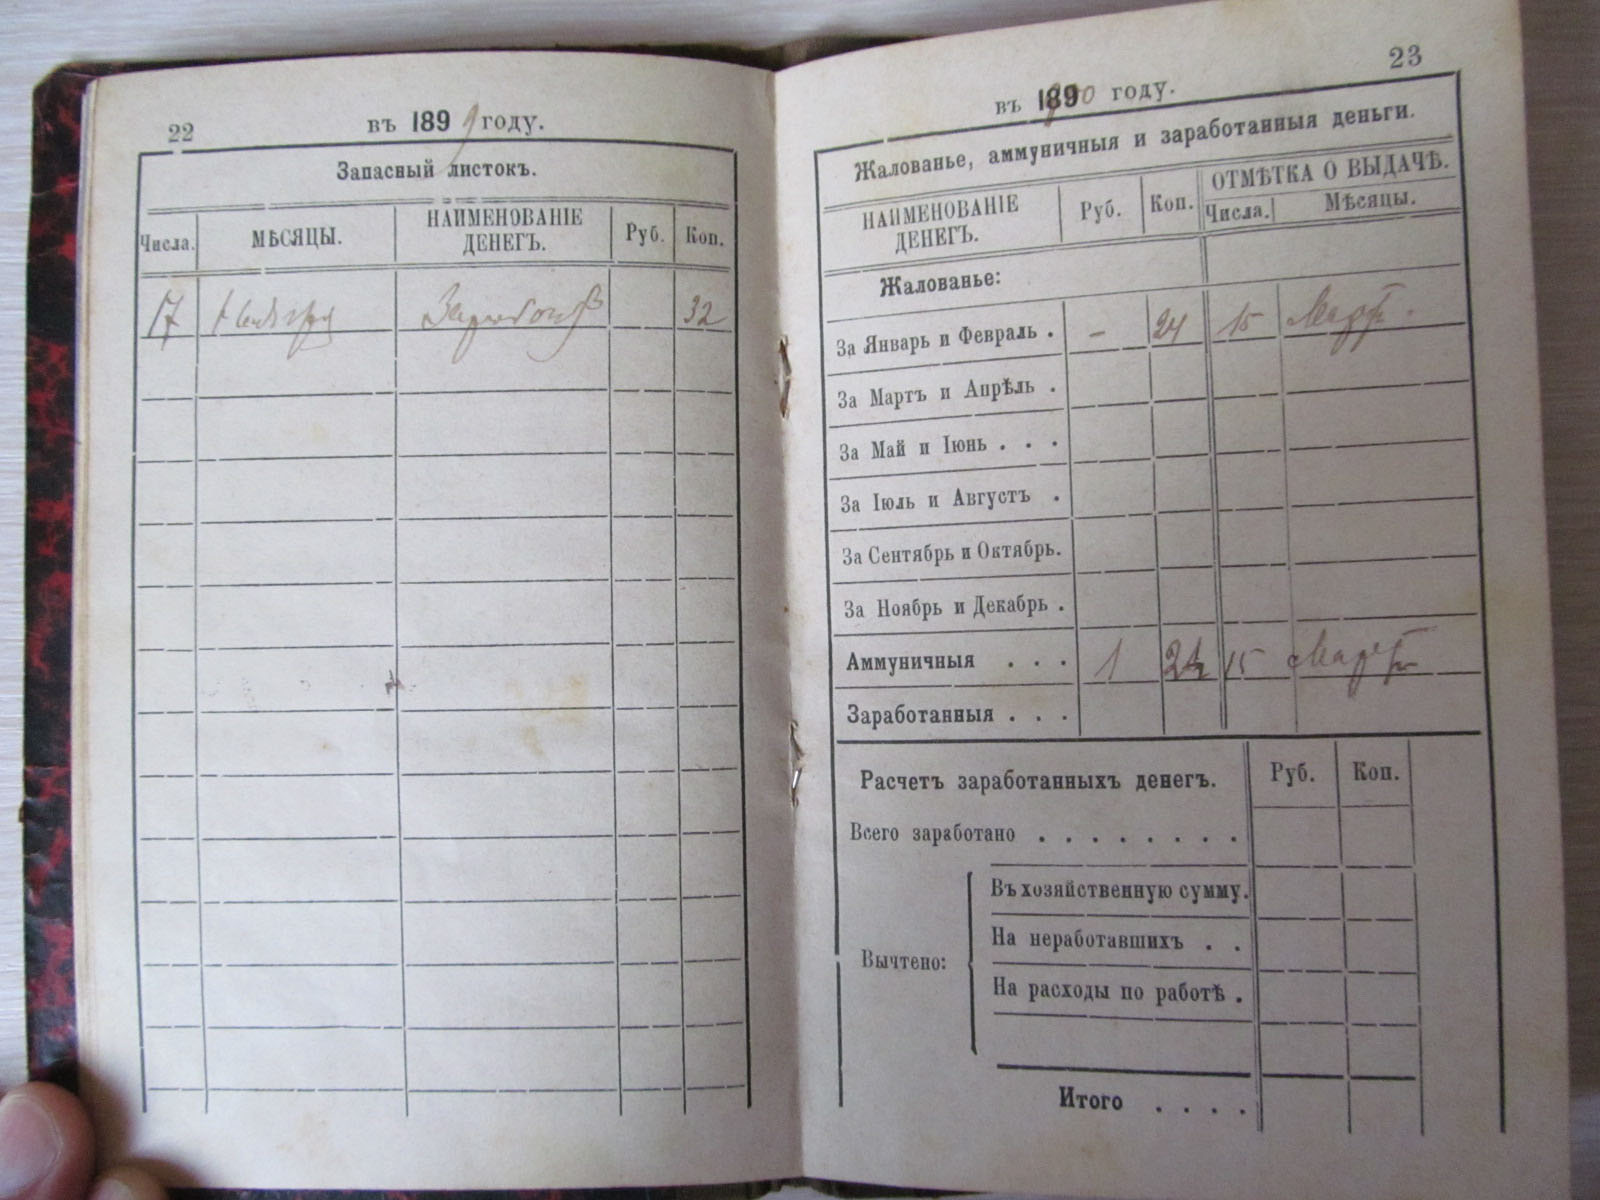 22
въ 1899 году.
Запасный листокъ.
Числа. МѢСЯЦЫ. НАИМЕНОВАНІЕ ДЕНЕГЪ. Руб. Коп.
17 32
23
въ 1900 году.
Жалованье, аммуничныя и заработанныя деньги.
НАИМЕНОВАНІЕ ДЕНЕГЪ. Руб. Коп. ОТМѢТКА О ВЫДАЧѢ.
Числа. Мѣсяцы.
Жалованье:
За Январь и Февраль . – 24 15 Мартъ.
За Мартъ и Апрѣль .
За Май и Іюнь . . .
За Іюль и Августъ .
За Сентябрь и Октябрь.
За Ноябрь и Декабрь .
Аммуничныя . . . 1 24 15 Мартъ
Заработанныя . . .
Расчетъ заработанныхъ денегъ. Руб. Коп.
Всего заработано . . . . . . . .
Вычтено:
Въ хозяйственную сумму.
На неработавшихъ . .
На расходы по работѣ .
Итого . . . .